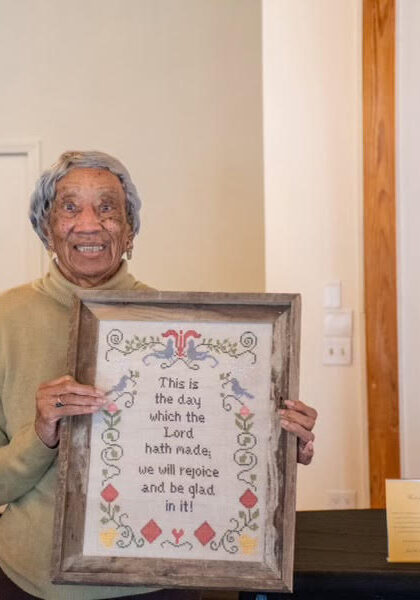 This is
the day
which the
Lord
hath made;
we will rejoice
and be glad
in it!